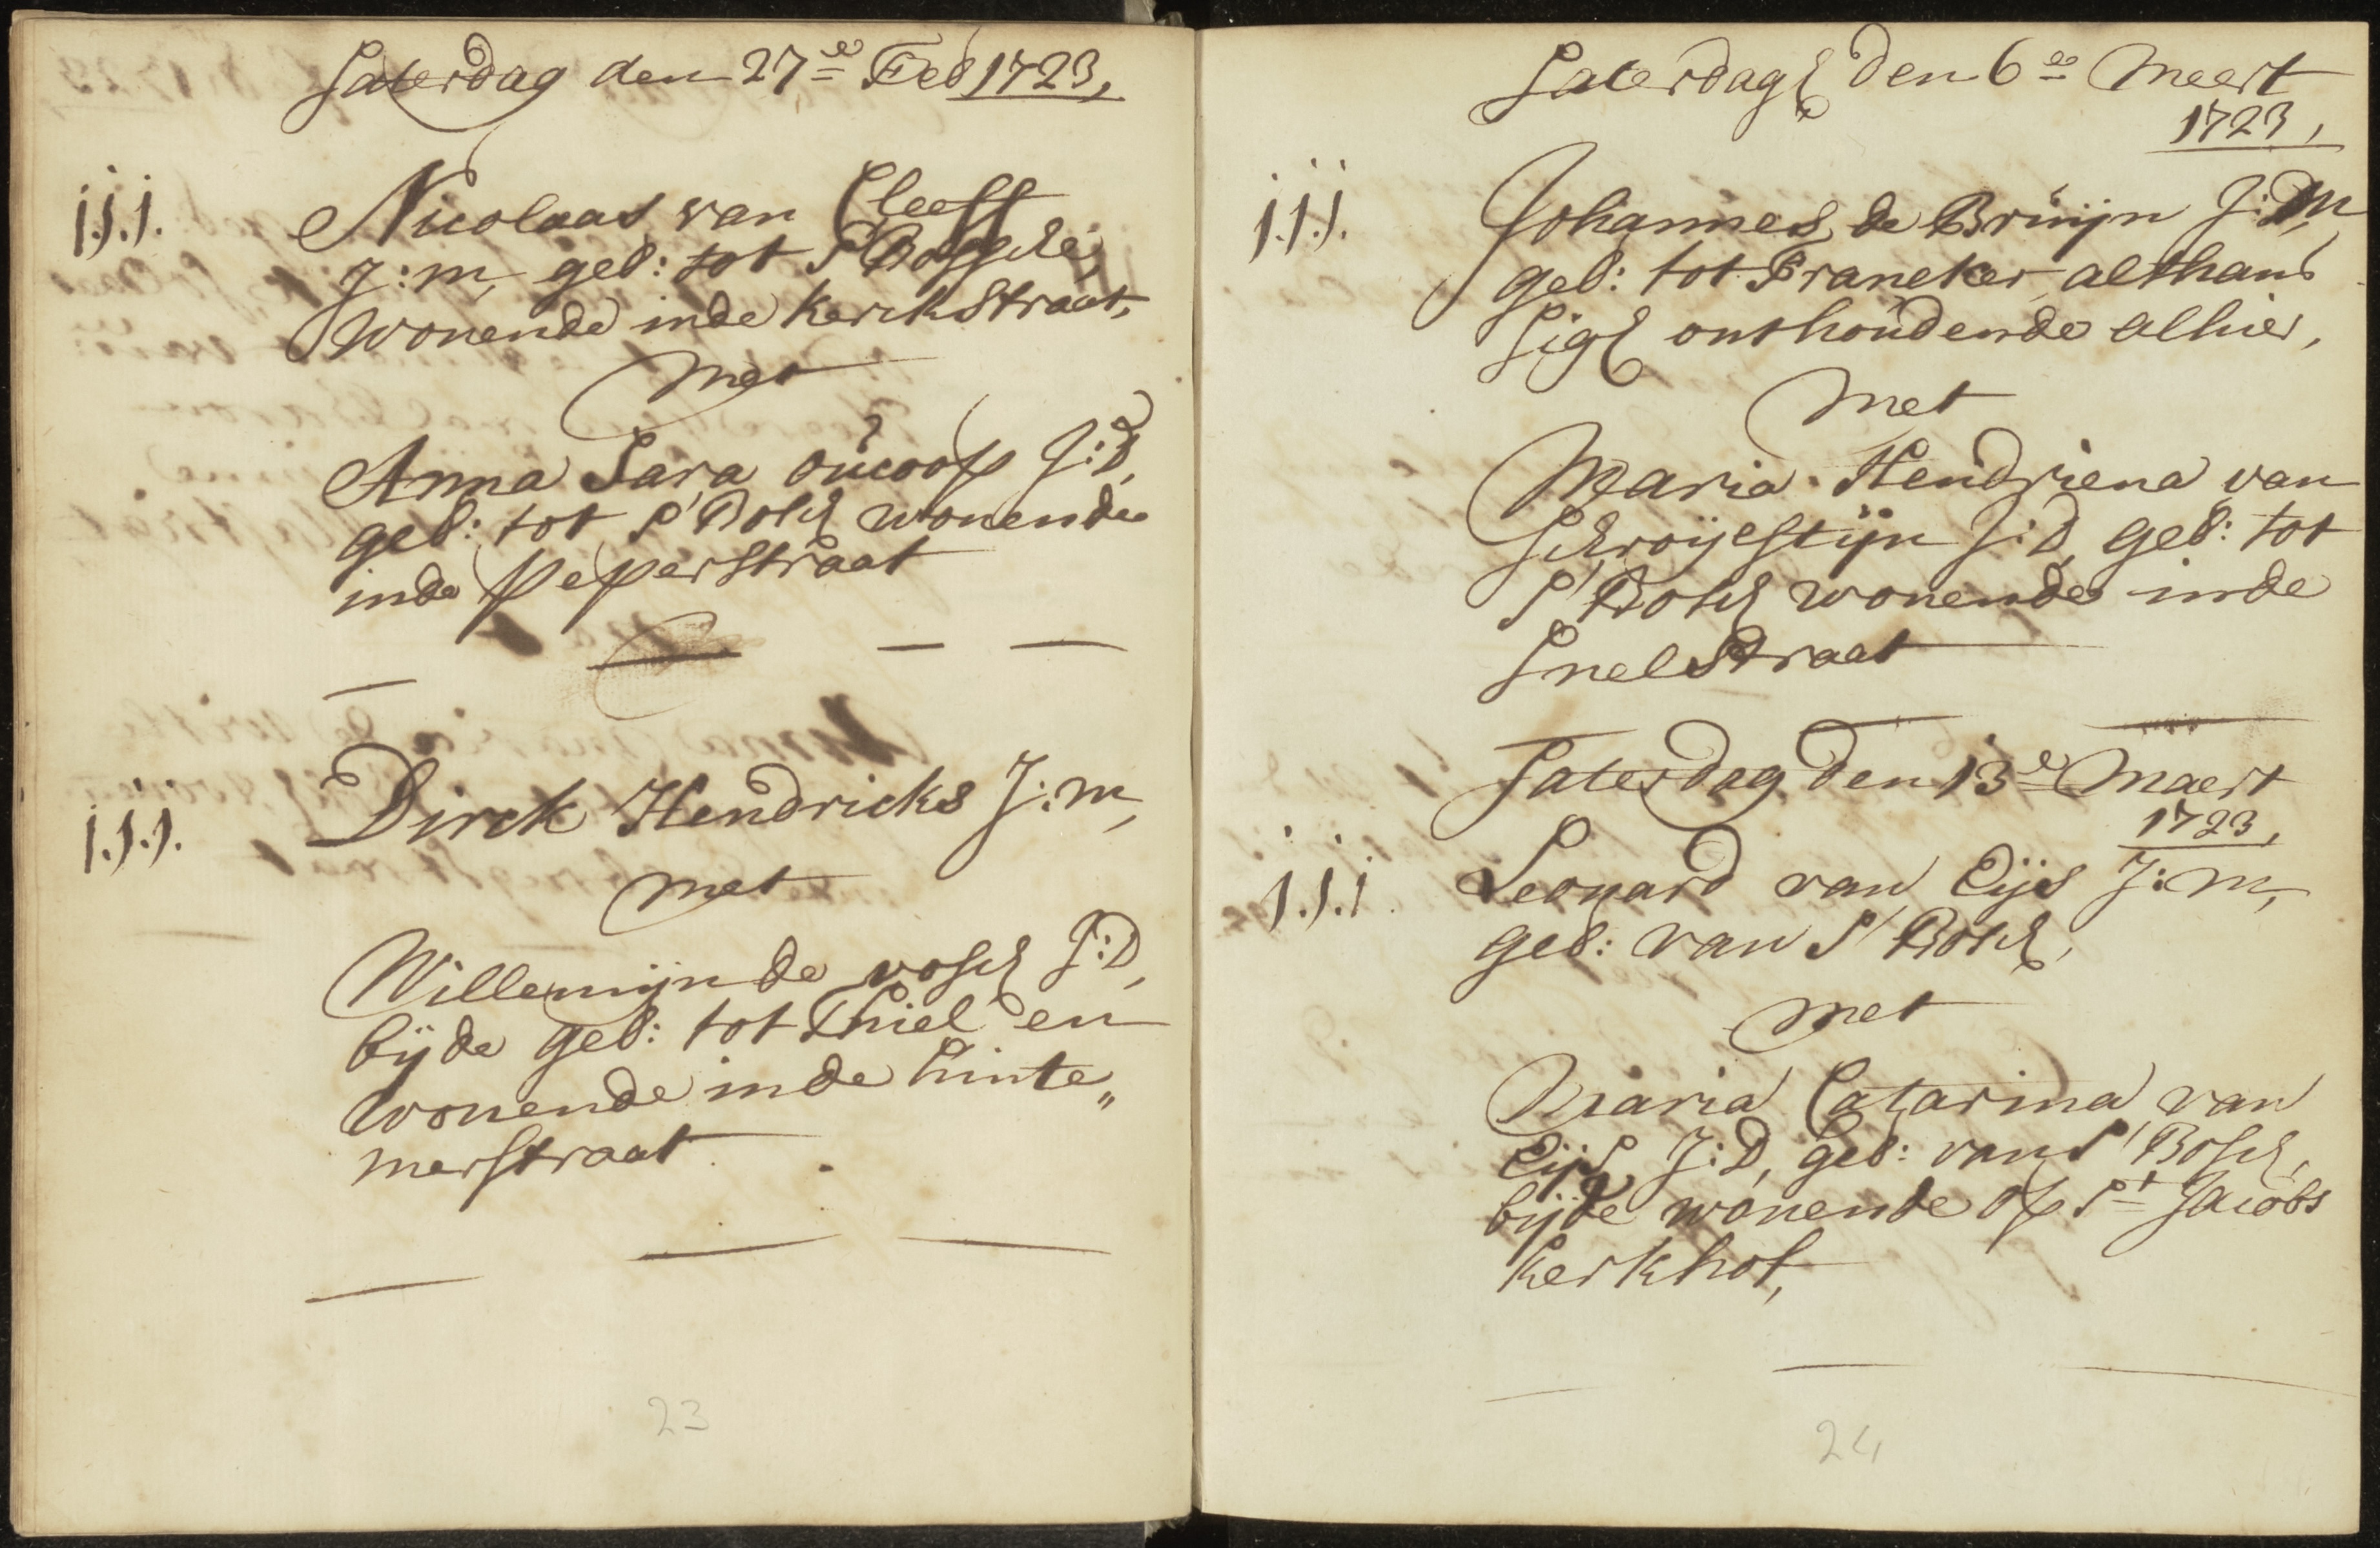 Saterdag den 27=de Feb 1723,
1.1.1. Nicolaas van Cleeff
J:m, geb: tot S'Bossche,
Wonende inde kerckstraat,
Met
Anna Sara oucoop J:d,
geb: tot S'Bosch wonende
inde peperstraat
1.1.1. Dirck Hendricks J:m,
met
Willemijn de vosch J:D,
bijde geb: tot Thiel en
wonende inde hinte„
merstraat
23
Saterdagh den 6=de Meert
1723,
1.1.1. Johannes de Bruijn J:M,
geb: tot Franeker althans
Sigh onthoudende alhier,
Met
Maria Hendriena van
Schroijestijn J:d, geb: tot
S'Bosch wonende inde
Snelstraat
Saterdag den 13=de Maert
1723,
1.1.1 Leonard van Eijs J:m,
geb: van S'Bosch,
met
Maria Catarina van
Eijs, J:D, geb: van S'Bosch,
bijde wonende op St= Jacobs
kerkhof,
24